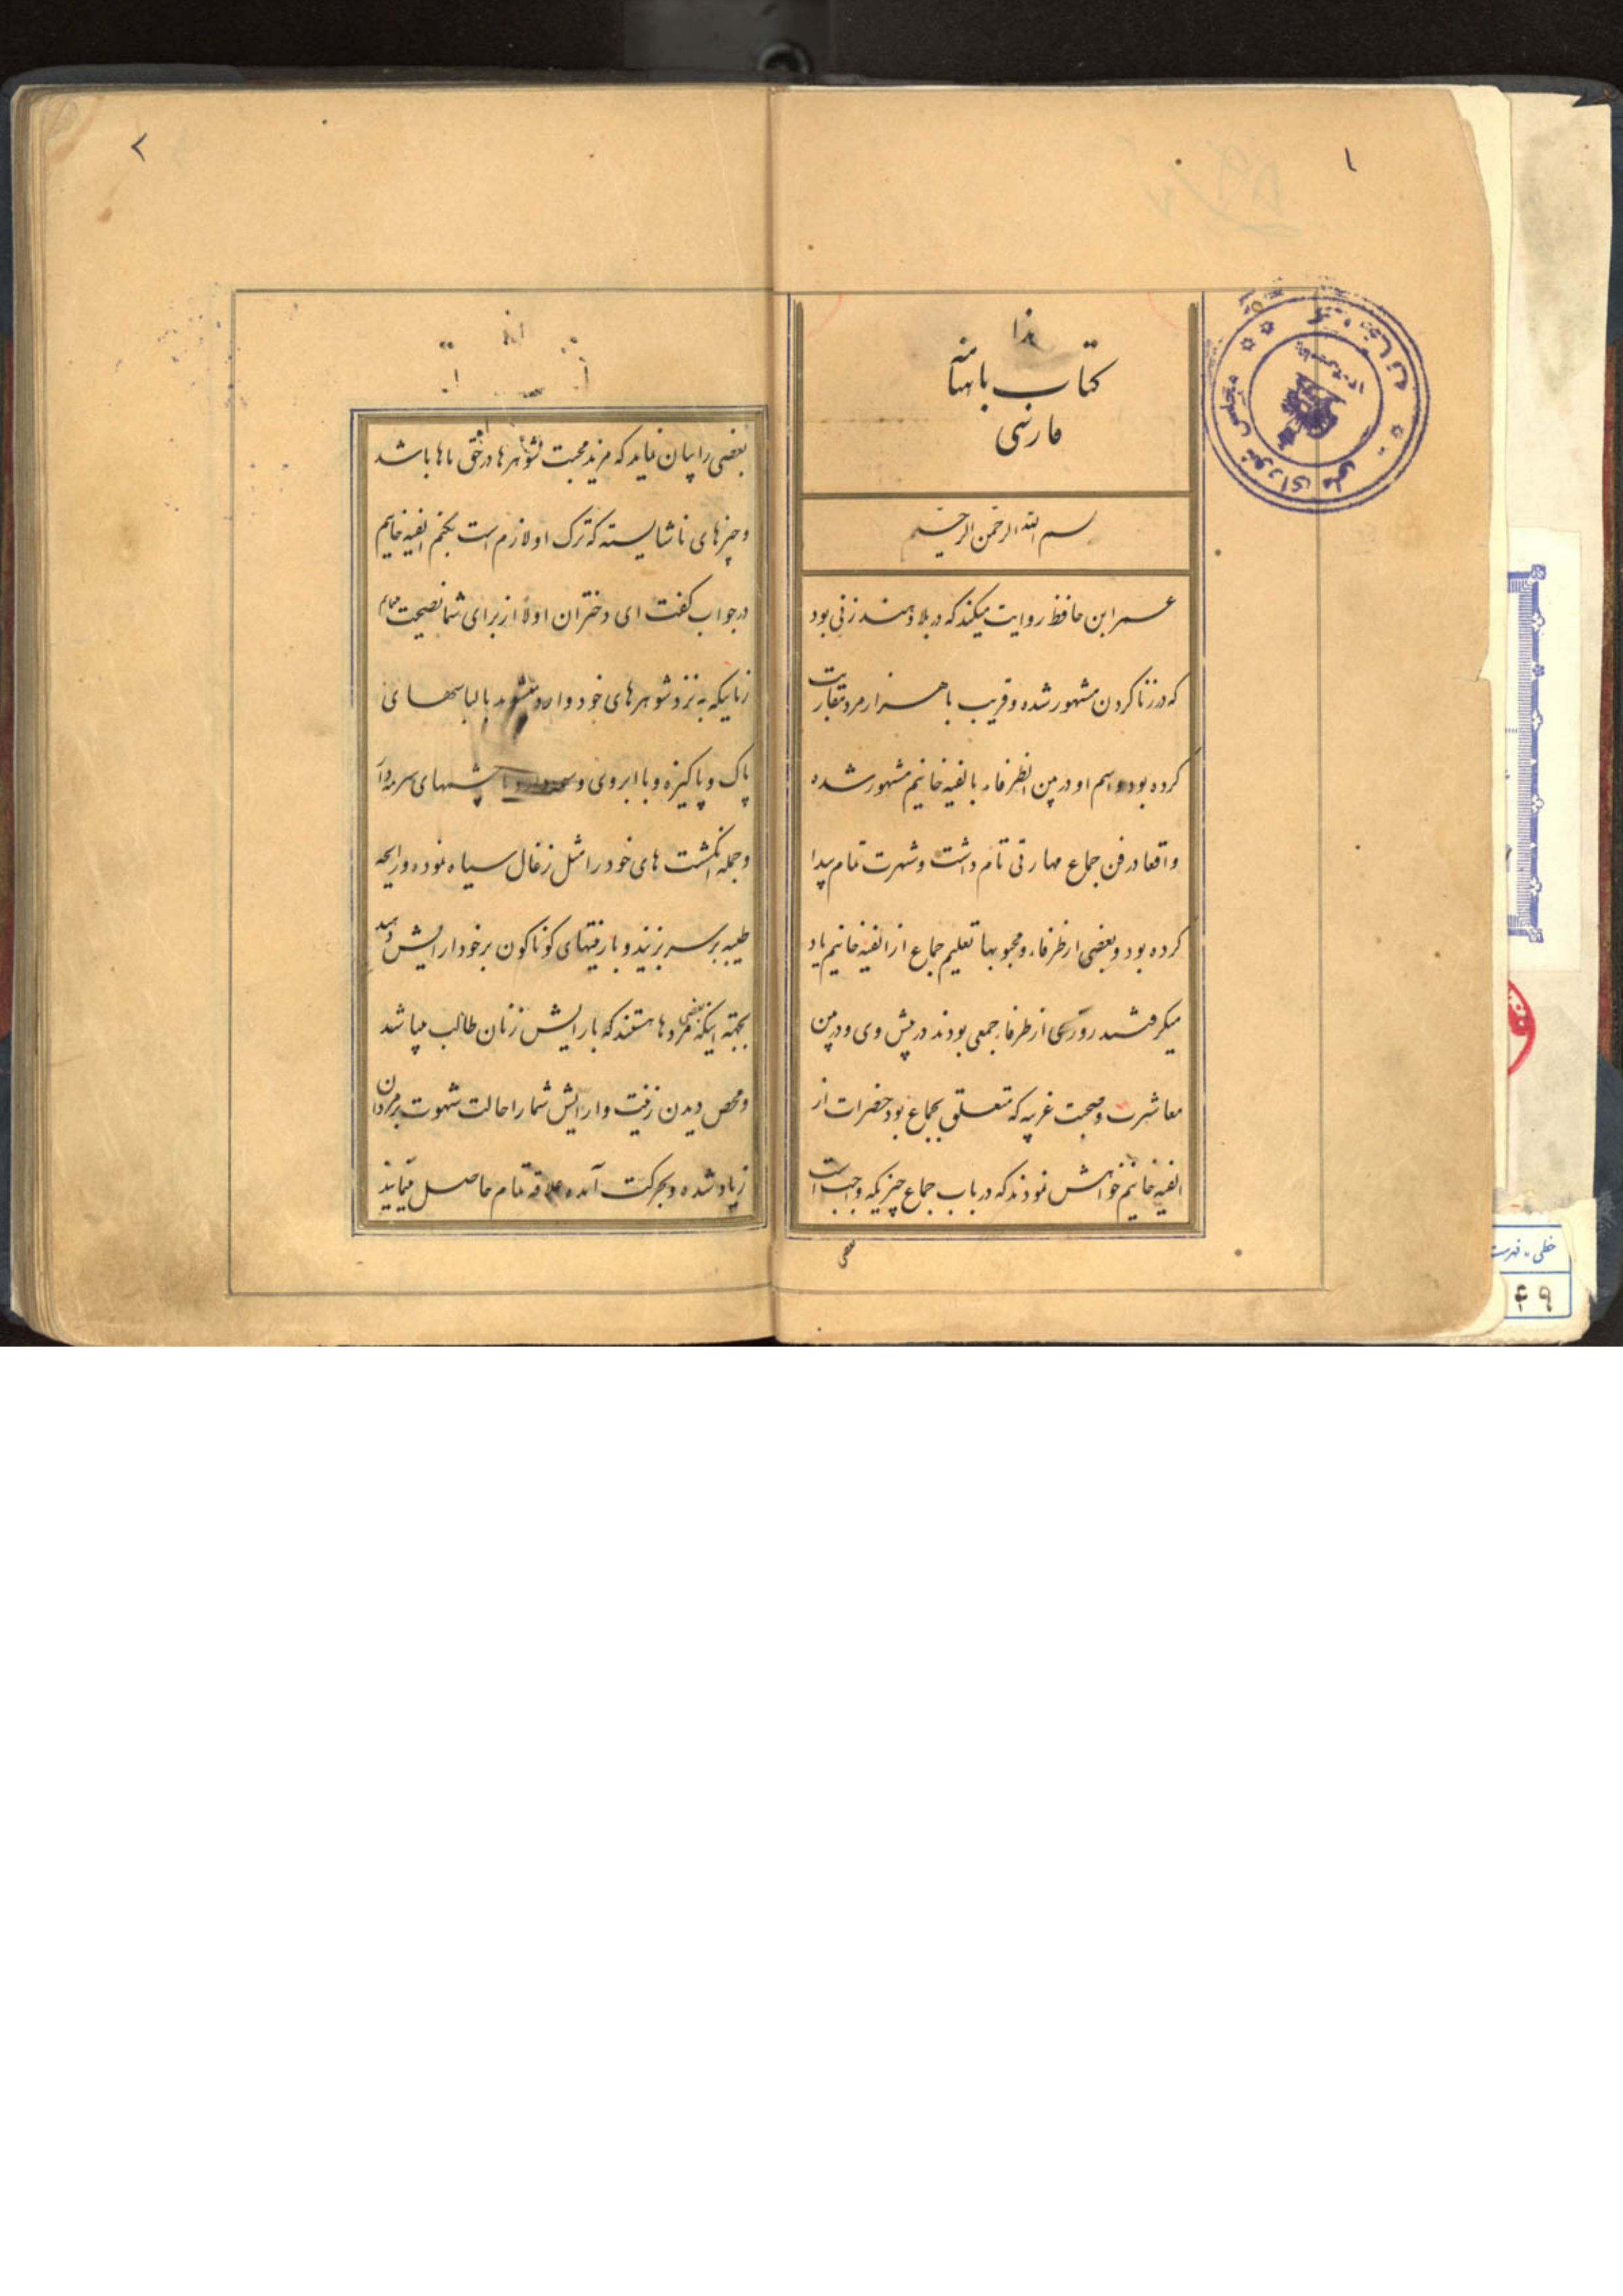 ۱
هذا
کتاب باهنامه
فارسی
بسم الله الرحمن الرحیم
عمر ابن حافظ روایت میکند که در بلاد هند زنی بود
که در زنا کردن مشهور شده و قریب با هزار مرد مقاربت
کرده بود و اسم او در بین الظرفاء بالفیه خانیم مشهور شده
واقعا در فن جماع مهارتی تام داشت و شهرت تمام پیدا
کرده بود و بعضی از ظرفاء و محبوبها تعلیم جماع از الفیه خانیم یاد
میکرفتند روزی از ظرفاء جمعی بودند در پیش وی و در بین
معاشرت و صحبت غریبه که متعلق بجماع بود حضرات از
الفیه خانیم خواهش نمودند که در باب جماع چیزیکه واجب است
بعضی
۲
بعضی را بیان نماید که مزید محبت شوهرها در حق ماها باشد
و چیزهای ناشایسته که ترک او لازم است بکنم الفیه خانیم
در جواب کفت ای دختران اولا از برای شما نصیحت
زنانیکه به نزد شوهرهای خود وارد میشوند با لباسهای
پاک و پاکیزه و با ابروی وسمه دار و با چشمهای سرمه دار
و جمله انکشت های خود را مثل زغال سیاه نموده و رایحه
طیبه بر سر بزنید و با زینتهای کوناکون بر خود ارایش دهید
بجهته اینکه بعضی مردها هستند که بارایش زنان طالب میباشد
و محض دیدن زینت و ارایش شما را حالت شهوت بر مردان
زیاد شده و بحرکت آمده علاقه تمام حاصل مینمایند
مجلس شورای ملی
خطی - فهرست
۴۹